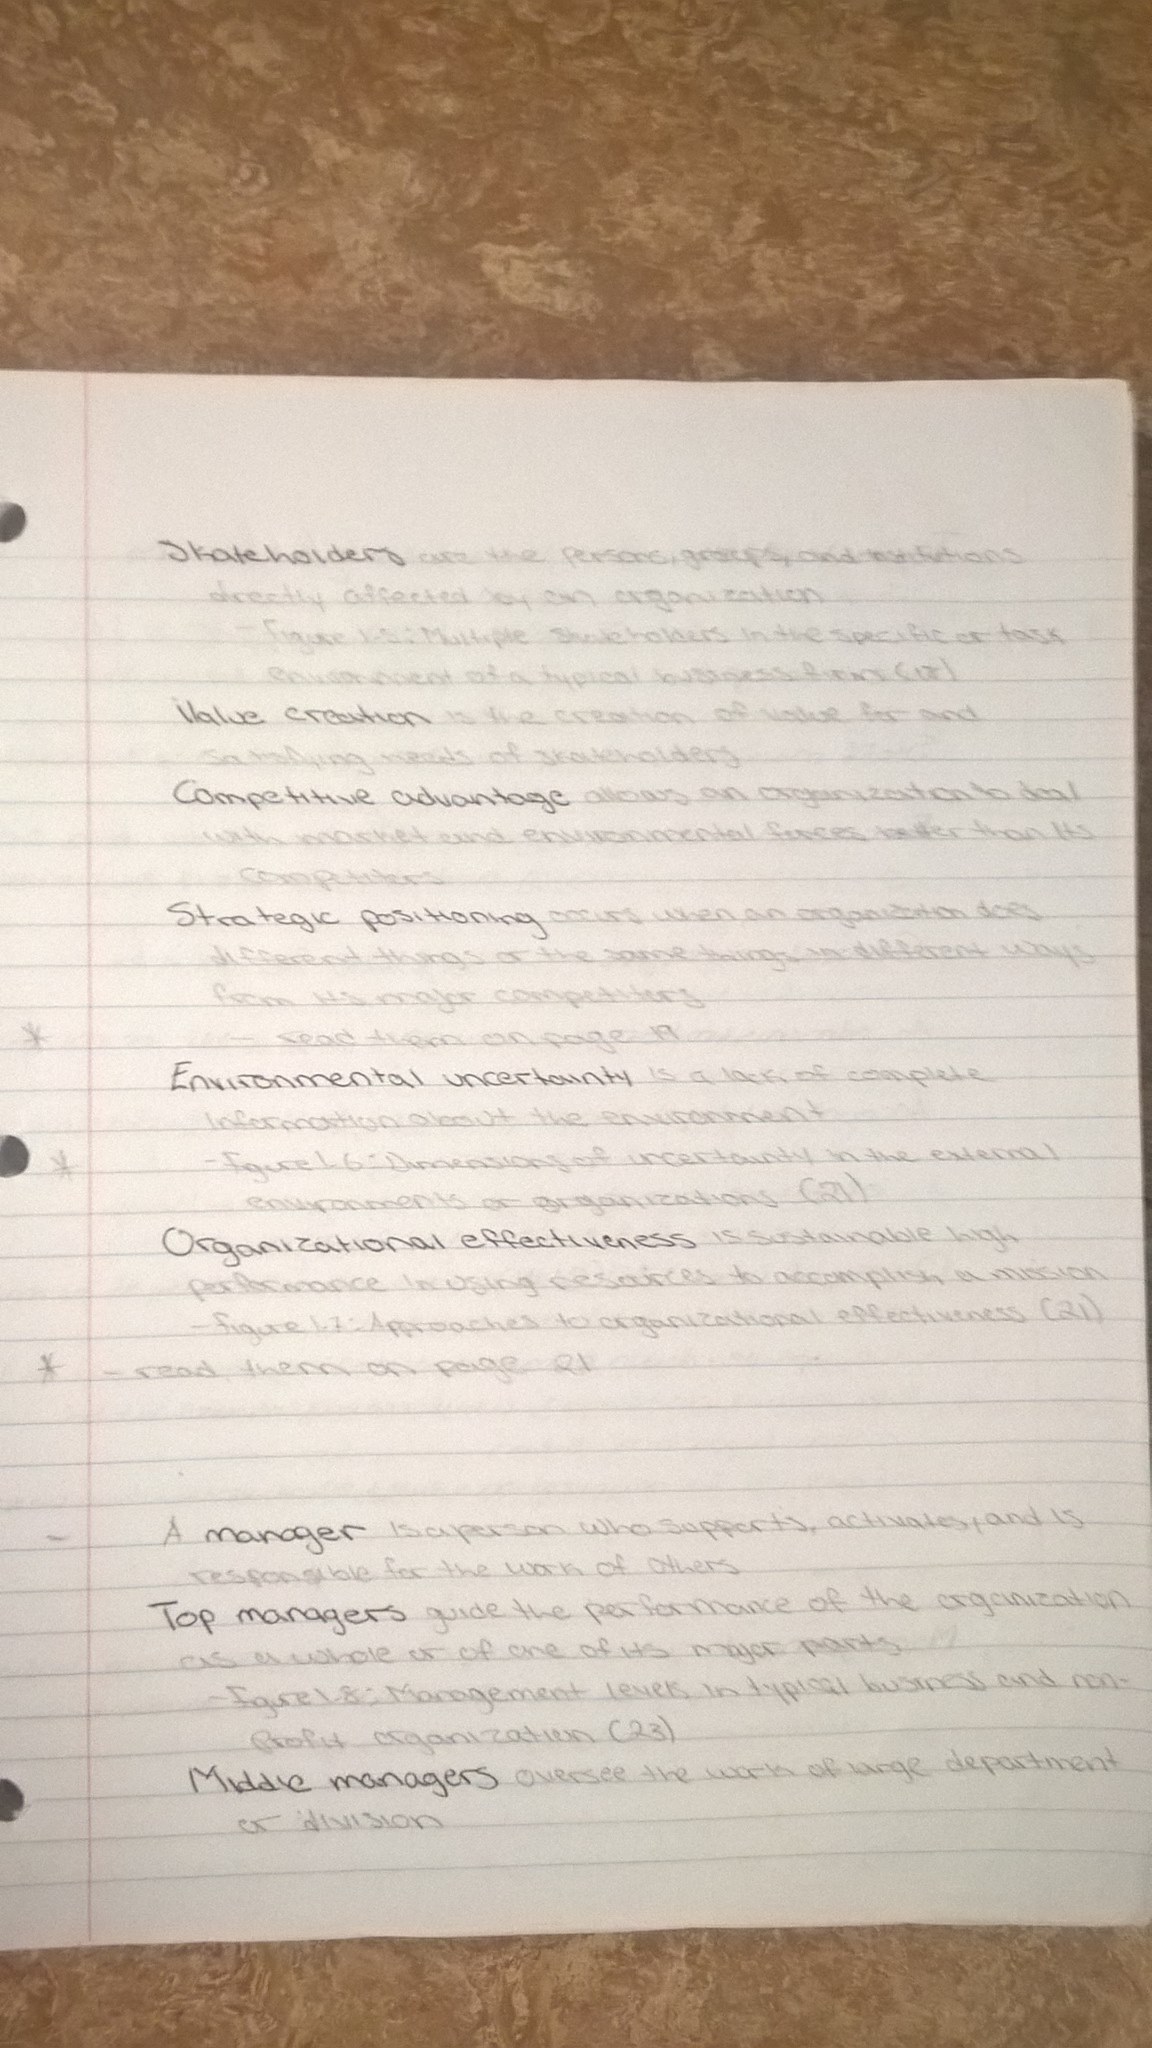 Stakeholders are the persons, groups, and institutions
directly affected by an organization
- Figure 1.5: Multiple stakeholders in the specific or task
environment of a typical business firm (18)
Value creation is the creation of value for and
satisfying needs of stakeholders
Competitive advantage allows an organization to deal
with market and environmental forces better than its
competiters
Strategic positioning occurs when an organization does
different things or the same things in different ways
from its major competiters
* - read them on page 19
Environmental uncertainty is a lack of complete
information about the environment
* - Figure 1.6: Dimensions of uncertainty in the external
environments of organizations (21)
Organizational effectiveness is sustainable high
performance in using resources to accomplish a mission
- Figure 1.7: Approaches to organizational effectiveness (21)
* - read them on page 21
- A manager is a person who supports, activates, and is
responsible for the work of others
Top managers guide the performance of the organization
as a whole or of one of its major parts
- Figure 1.8: Management levels in typical business and non-
profit organization (23)
Middle managers oversee the work of large department
or division